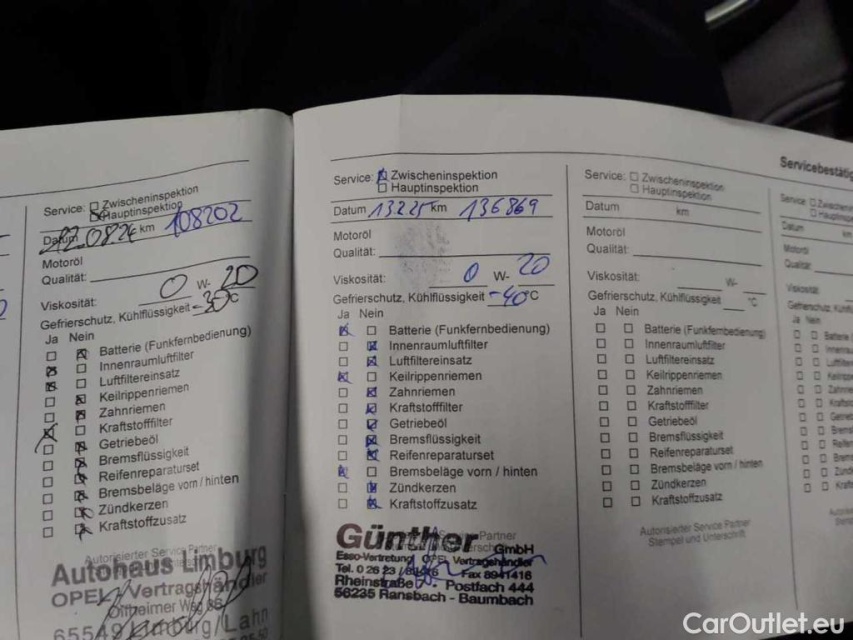 Service: Zwischeninspektion
Hauptinspektion
Datum 120824 km 108202
Motoröl
Qualität:
Viskosität: 0 W- 20
Gefrierschutz, Kühlflüssigkeit -30°C
Ja Nein
Batterie (Funkfernbedienung)
Innenraumluftfilter
Luftfiltereinsatz
Keilrippenriemen
Zahnriemen
Kraftstofffilter
Getriebeöl
Bremsflüssigkeit
Reifenreparaturset
Bremsbeläge vorn / hinten
Zündkerzen
Kraftstoffzusatz
Autorisierter Service Partner
Autohaus Limburg
OPEL Vertragshändler
65549 Limburg/Lahn
Service: Zwischeninspektion
Hauptinspektion
Datum 13225 km 136869
Motoröl
Qualität:
Viskosität: 0 W- 20
Gefrierschutz, Kühlflüssigkeit -40°C
Ja Nein
Batterie (Funkfernbedienung)
Innenraumluftfilter
Luftfiltereinsatz
Keilrippenriemen
Zahnriemen
Kraftstofffilter
Getriebeöl
Bremsflüssigkeit
Reifenreparaturset
Bremsbeläge vorn / hinten
Zündkerzen
Kraftstoffzusatz
Günther GmbH
Esso-Vertretung OPEL Vertragshändler
Tel. 0 26 23 / Fax 8941416
Rheinstraße Postfach 444
56235 Ransbach - Baumbach
Service: Zwischeninspektion
Hauptinspektion
Datum km
Motoröl
Qualität:
Viskosität: W-
Gefrierschutz, Kühlflüssigkeit °C
Ja Nein
Batterie (Funkfernbedienung)
Innenraumluftfilter
Luftfiltereinsatz
Keilrippenriemen
Zahnriemen
Kraftstofffilter
Getriebeöl
Bremsflüssigkeit
Reifenreparaturset
Bremsbeläge vorn / hinten
Zündkerzen
Kraftstoffzusatz
Autorisierter Service Partner
Stempel und Unterschrift
Servicebestätig
Service:
Datum km
Motoröl
Qualität:
Viskosität:
Ja Nein
CarOutlet.eu